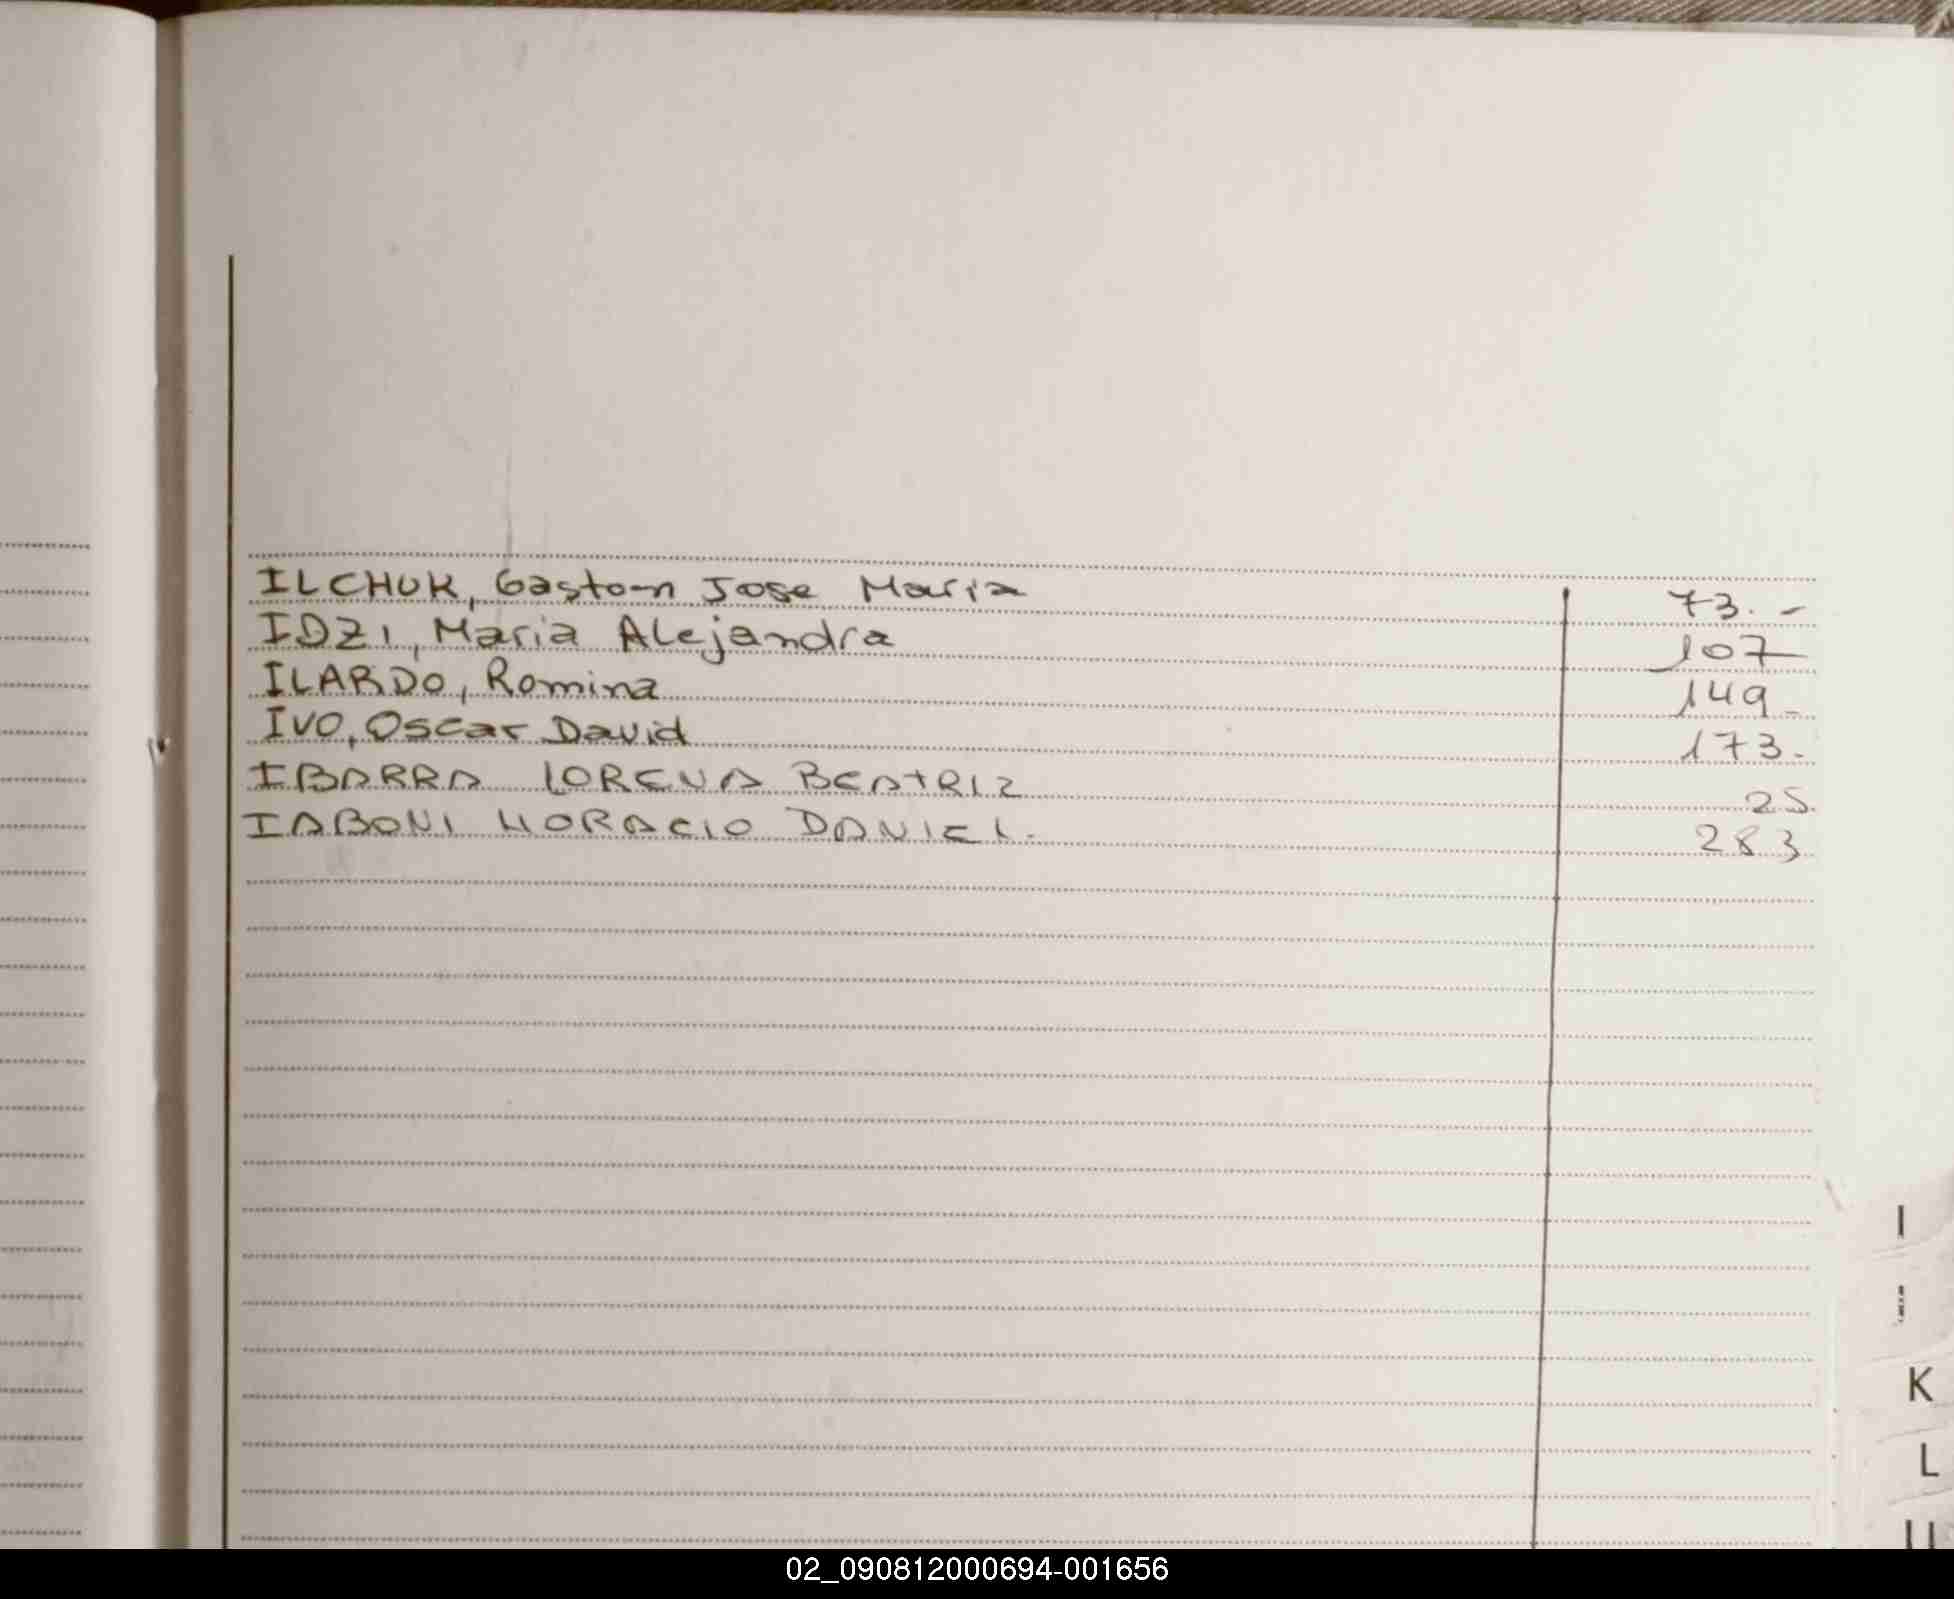 ILCHUK, Gaston Jose Maria 73.-
IDZI, Maria Alejandra 107
ILARDO, Romina 149-
IVO, Oscar David 173-
IBARRA LORENA BEATRIZ 25.
IABONI HORACIO DANIEL. 283
I
J
K
L
02_090812000694-001656